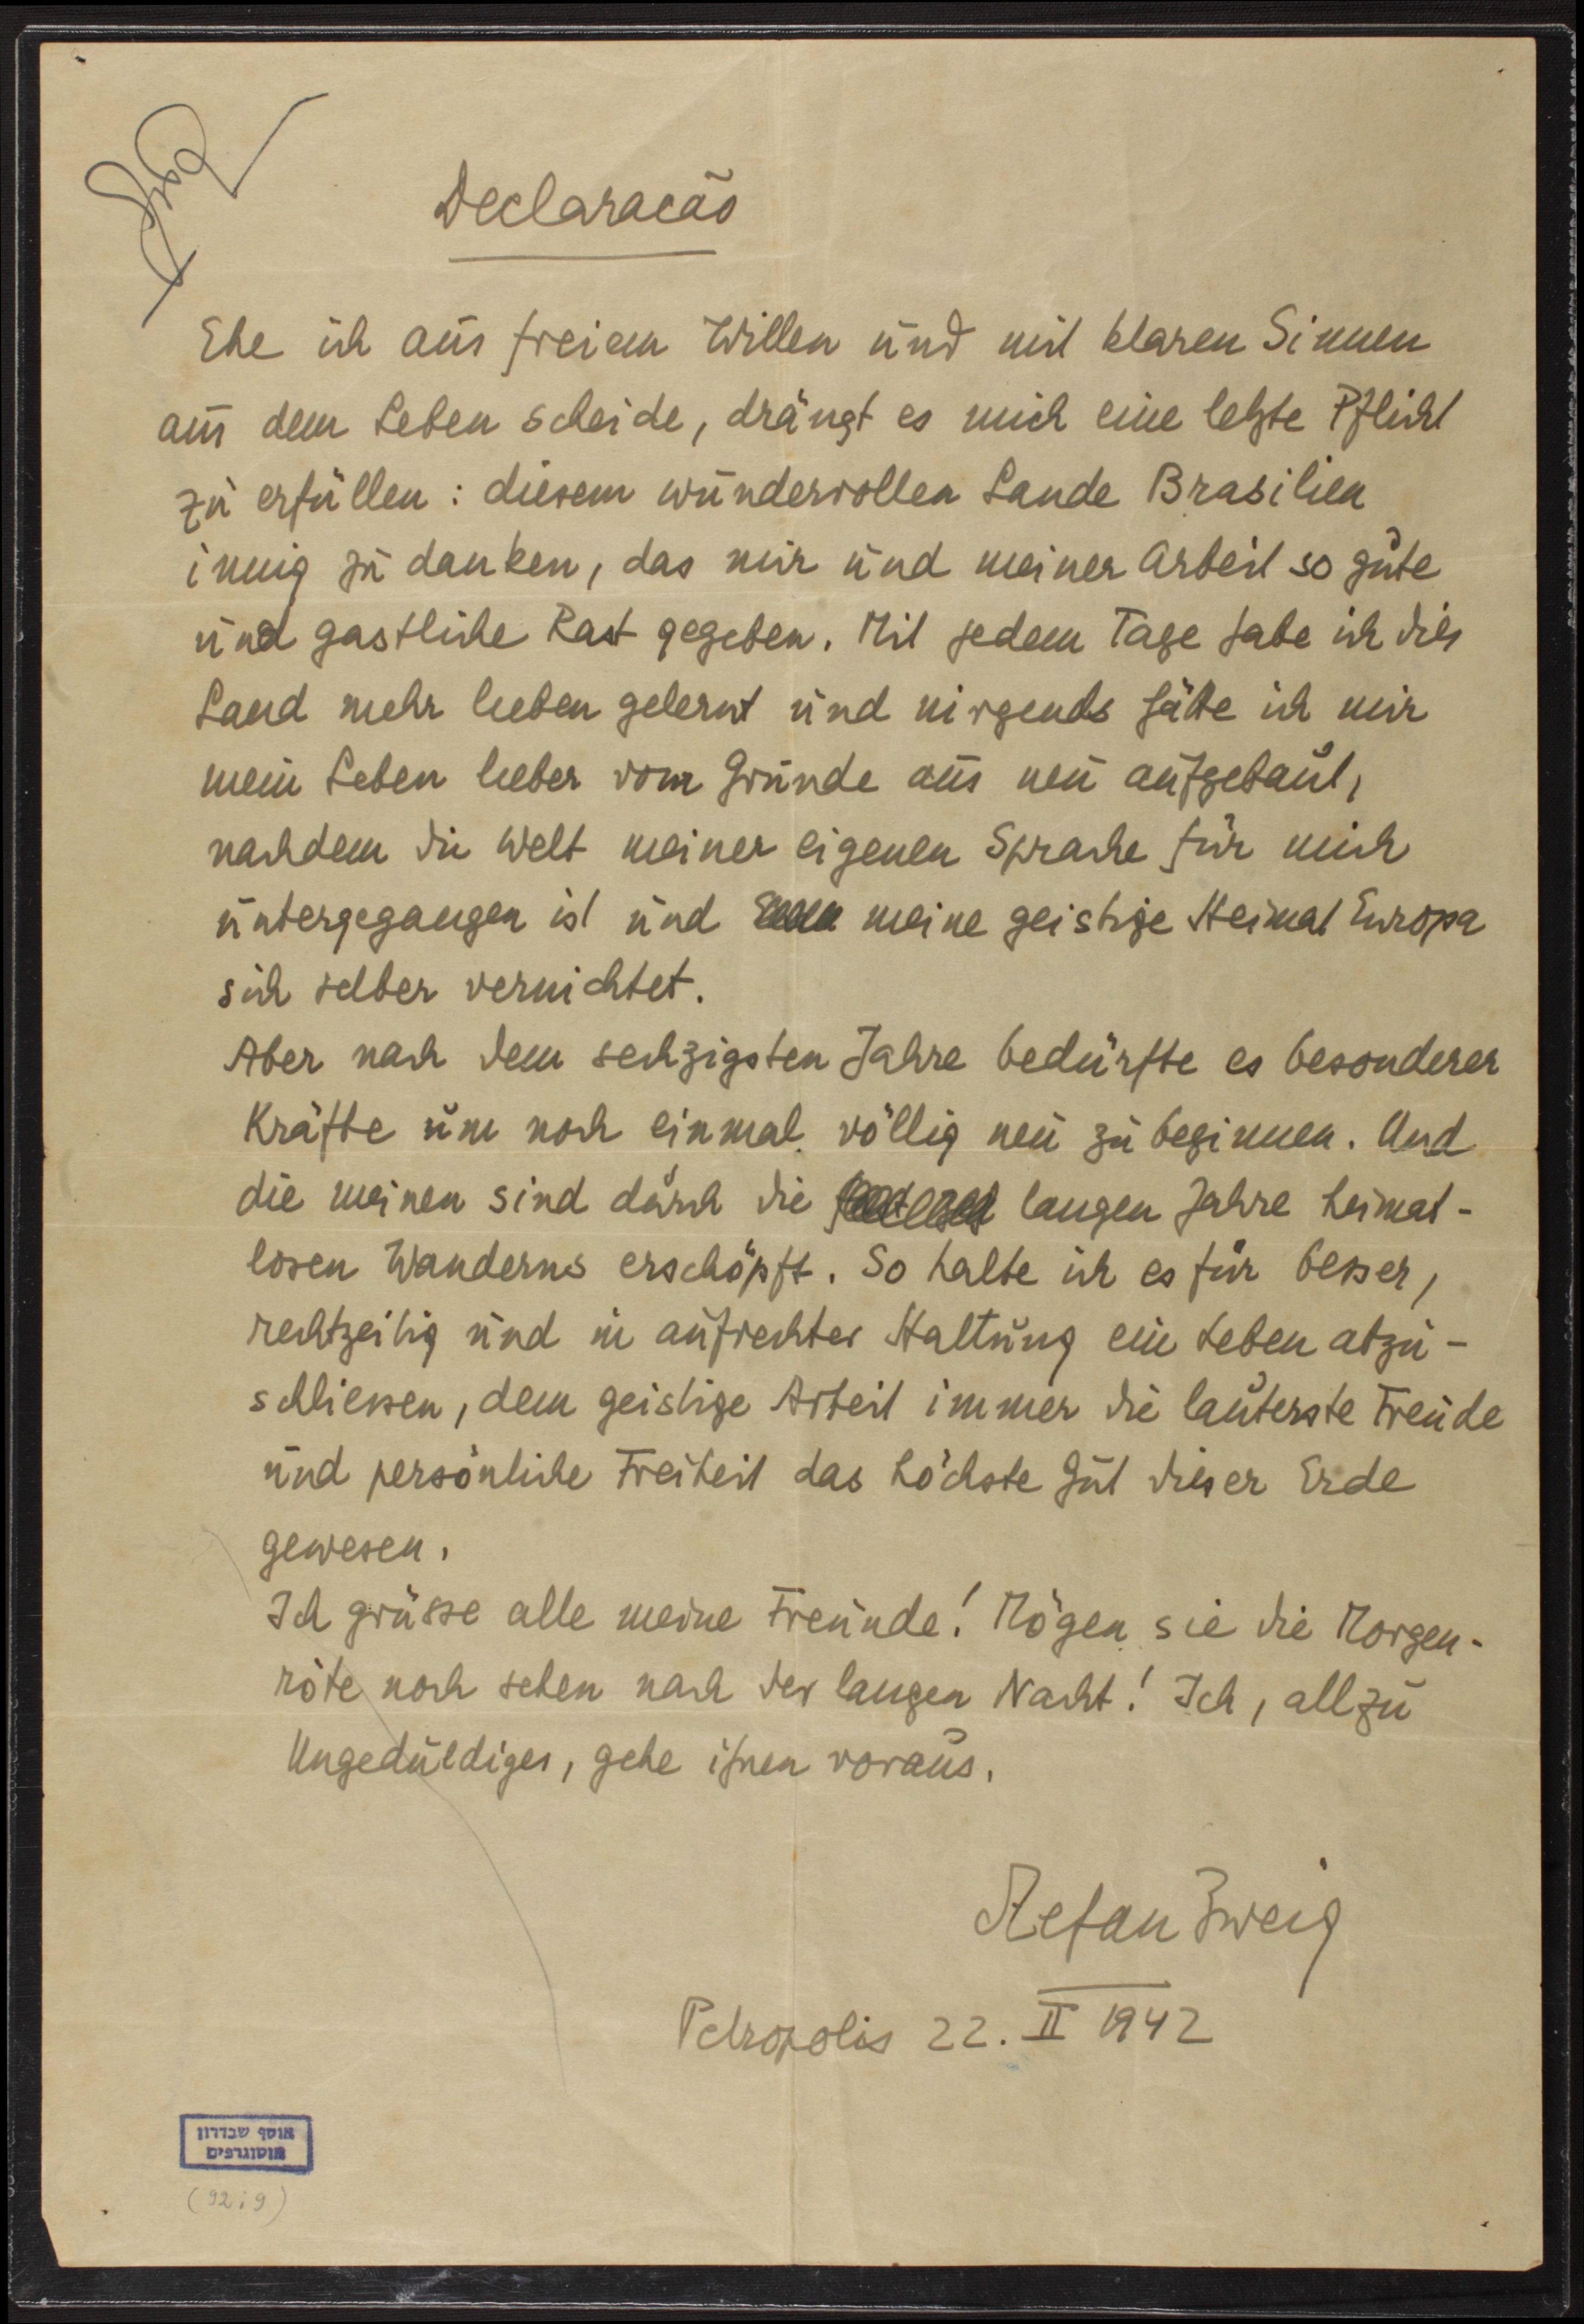 Declaracão
Ehe ich aus freiem Willen und mit klaren Sinnen
aus dem Leben scheide, drängt es mich eine letzte Pflicht
zu erfüllen: diesem wundervollen Lande Brasilien
innig zu danken, das mir und meiner Arbeit so gute
und gastliche Rast gegeben. Mit jedem Tage habe ich dies
Land mehr lieben gelernt und nirgends hätte ich mir
mein Leben lieber vom Grunde aus neu aufgebaut,
nachdem die Welt meiner eigenen Sprache für mich
untergegangen ist und meine geistige Heimat Europa
sich selber vernichtet.
Aber nach dem sechzigsten Jahre bedürfte es besonderer
Kräfte um noch einmal völlig neu zu beginnen. Und
die meinen sind durch die langen Jahre heimat-
losen Wanderns erschöpft. So halte ich es für besser,
rechtzeitig und in aufrechter Haltung ein Leben abzu-
schliessen, dem geistige Arbeit immer die lauterste Freude
und persönliche Freiheit das höchste Gut dieser Erde
gewesen.
Ich grüsse alle meine Freunde! Mögen sie die Morgen-
röte noch sehen nach der langen Nacht! Ich, allzu
Ungeduldiger, gehe ihnen voraus.
Stefan Zweig
Petropolis 22. II 1942
אוסף שבדרון
אוטוגרפים
(92:9)